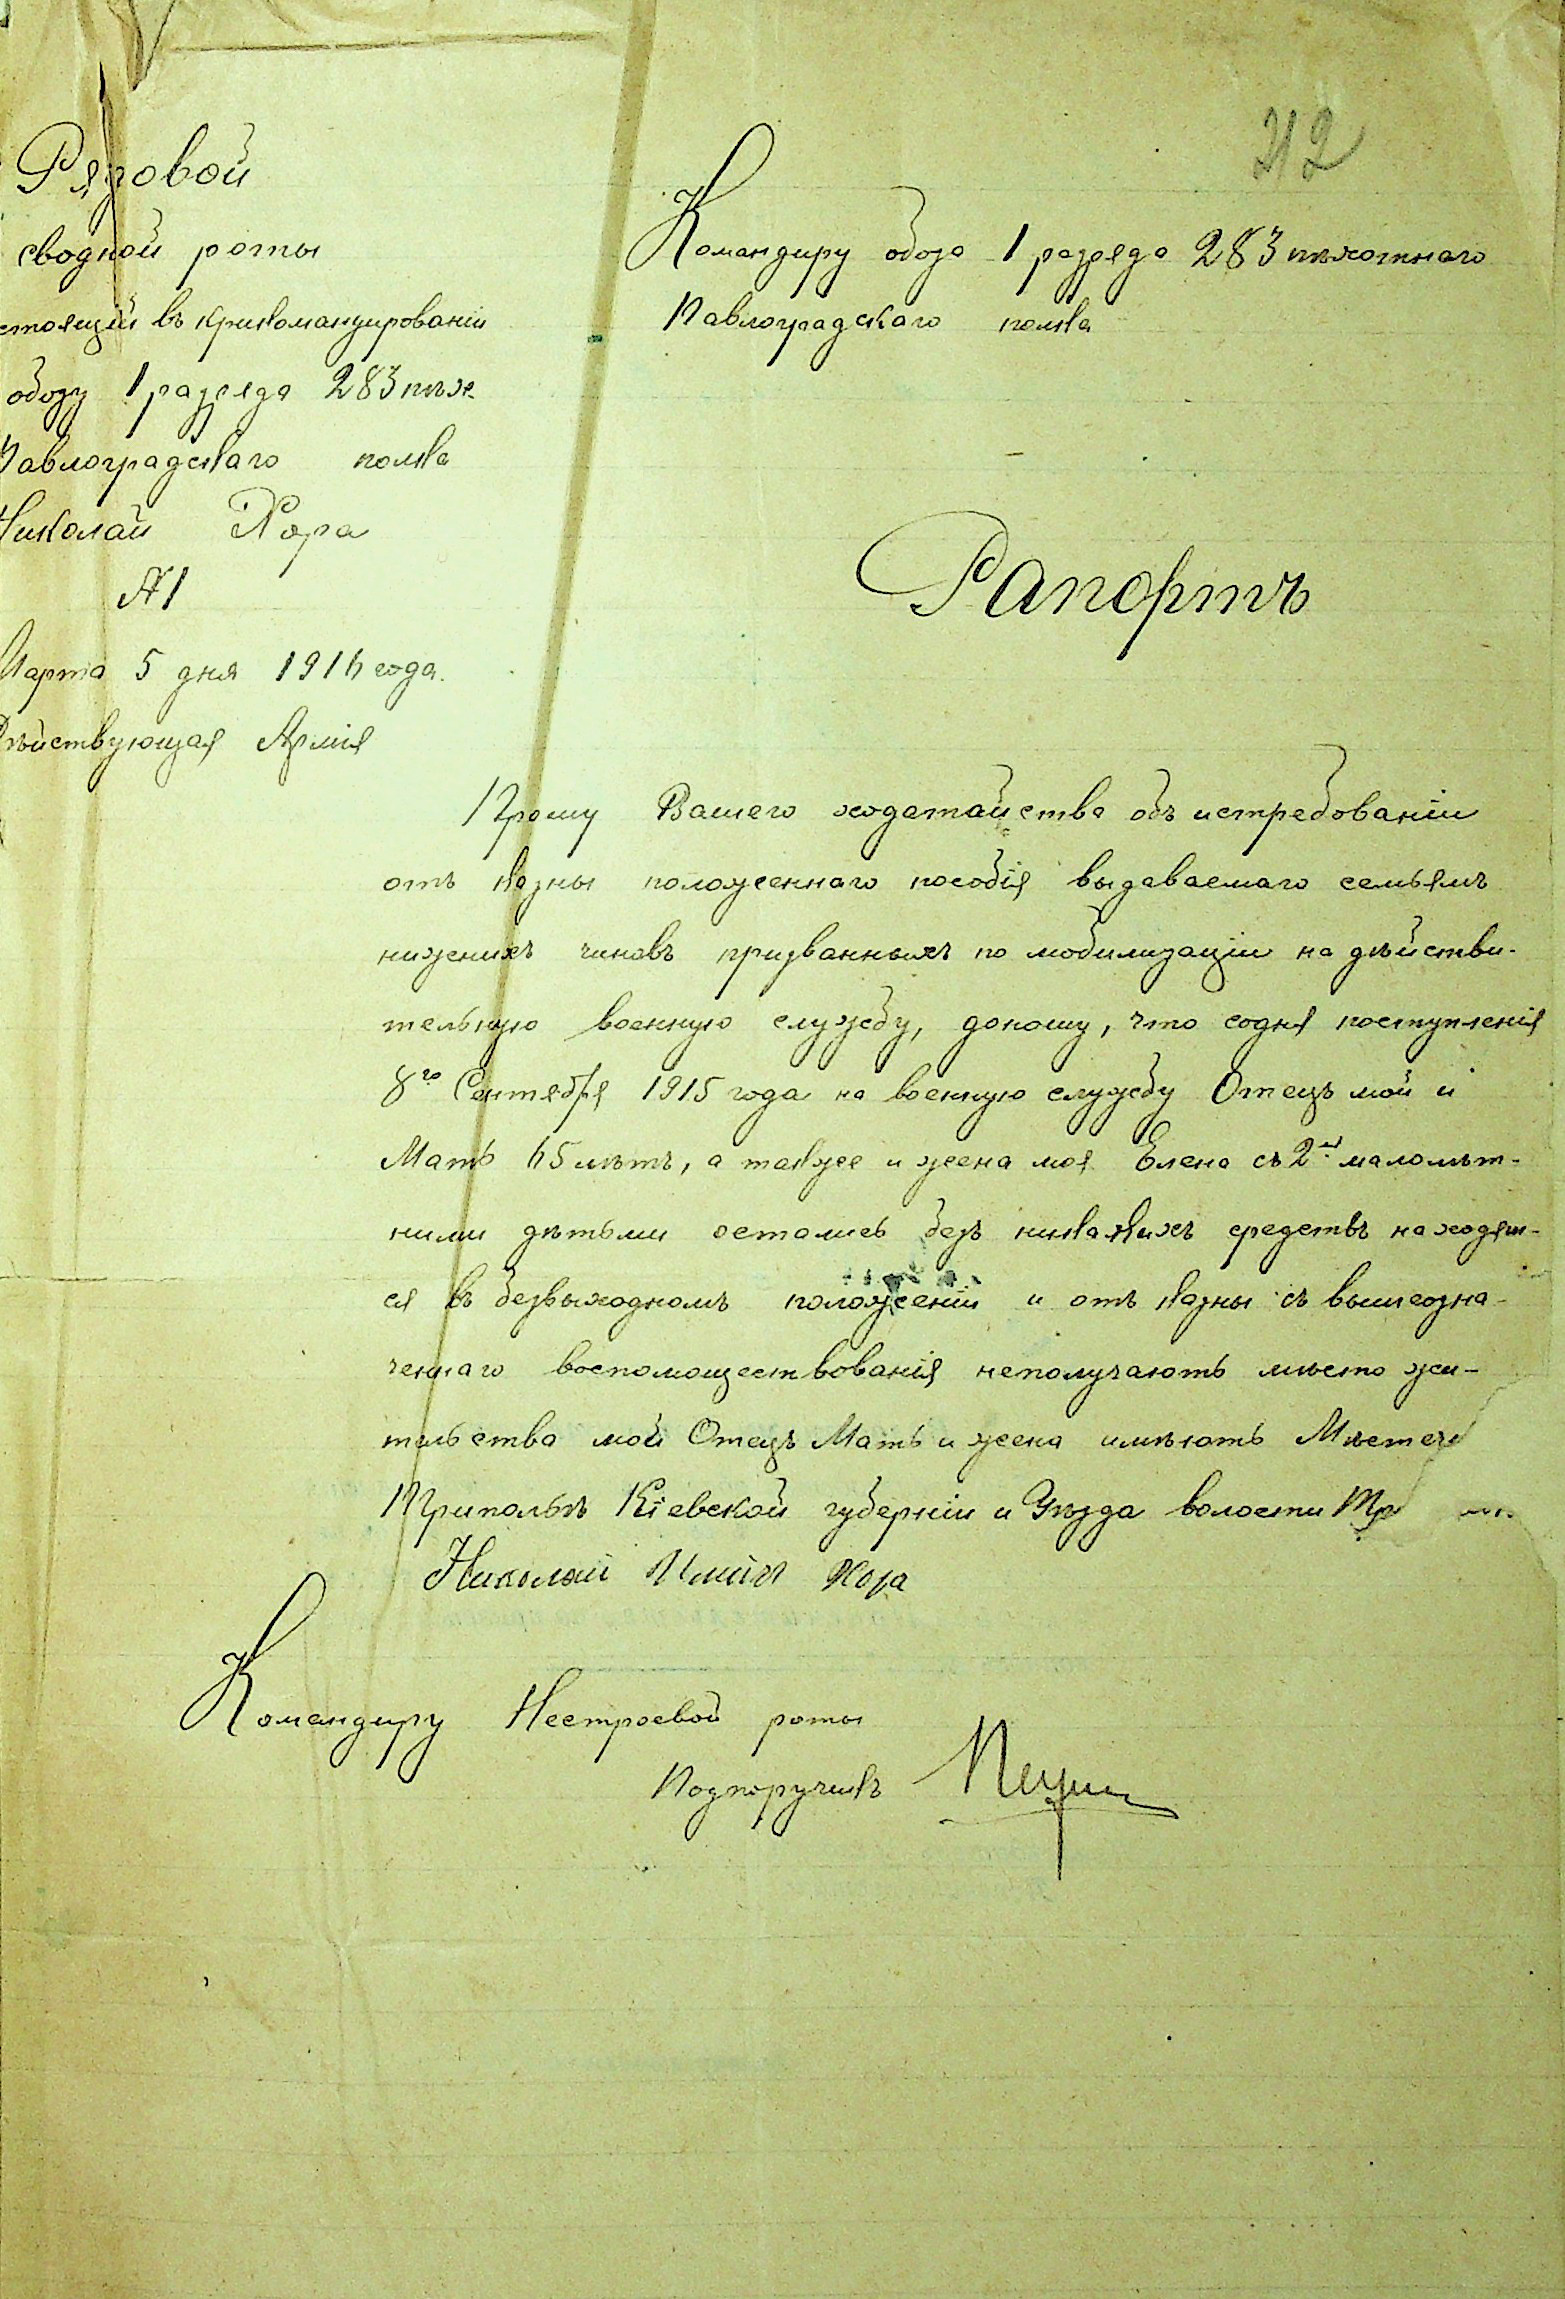 212
Рядовой
сводной роты
стоящій въ прикомандированіи
обозу 1 разряда 283 пѣх.
Павлоградскаго полка
Николай Хора
№ 1
Марта 5 дня 1916 года.
Дѣйствующая Армія
Командиру обоза 1 разряда 283 пѣхотнаго
Павлоградскаго полка
Рапортъ
Прошу Вашего ходатайства объ истребованіи
отъ казны положеннаго пособія выдаваемаго семьямъ
нижнихъ чиновъ призванныхъ по мобилизаціи на дѣйстви-
тельную военную службу, доношу, что содня поступленія
8го Сентября 1915 года на военную службу Отецъ мой и
Мать 65 лѣтъ, а также и жена моя Елена съ 2мя малолѣт-
ними дѣтьми остались безъ никакихъ средствъ находят-
ся въ безвыходномъ положеніи и отъ казны съ вышеозна-
ченнаго воспомоществованія неполучаютъ мѣсто жи-
тельства мой Отецъ Мать и жена имѣютъ Мѣстеч
Триполье Кіевской губерніи и Уѣзда волости Тр
Николай Хора
Командиру Нестроевой роты
Подпоручикъ